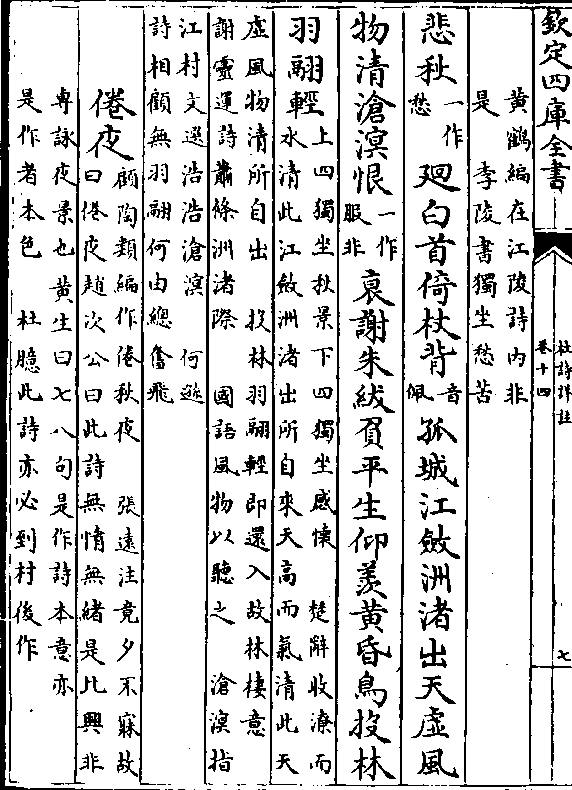 欽定四庫全書
杜詩詳註
卷十四
七
黃鶴編在江陵詩内非
是　李陵書獨坐愁苦
悲秋一作愁廻白首倚杖背音佩孤城江斂洲渚出天虛風
物清滄溟恨一作服非衰謝朱紱負平生仰羡黄昏鳥投林
羽翮輕上四獨坐秋景下四獨坐感懐　楚辭收潦而
水清此江斂洲渚出所自來天髙而氣清此天
虛風物清所自出　投林羽翮輕即還入故林棲意
謝靈運詩蕭條洲渚際　國語風物以聽之　滄溟指
江村文選浩浩滄溟　何遜
詩相顧無羽翮何由總奮飛
倦夜顧陶類編作倦秋夜　張遠注竟夕不寐故
曰倦夜趙次公曰此詩無情無緒是比興非
專詠夜景也黄生曰七八句是作詩本意亦
是作者本色　杜臆此詩亦必到村後作